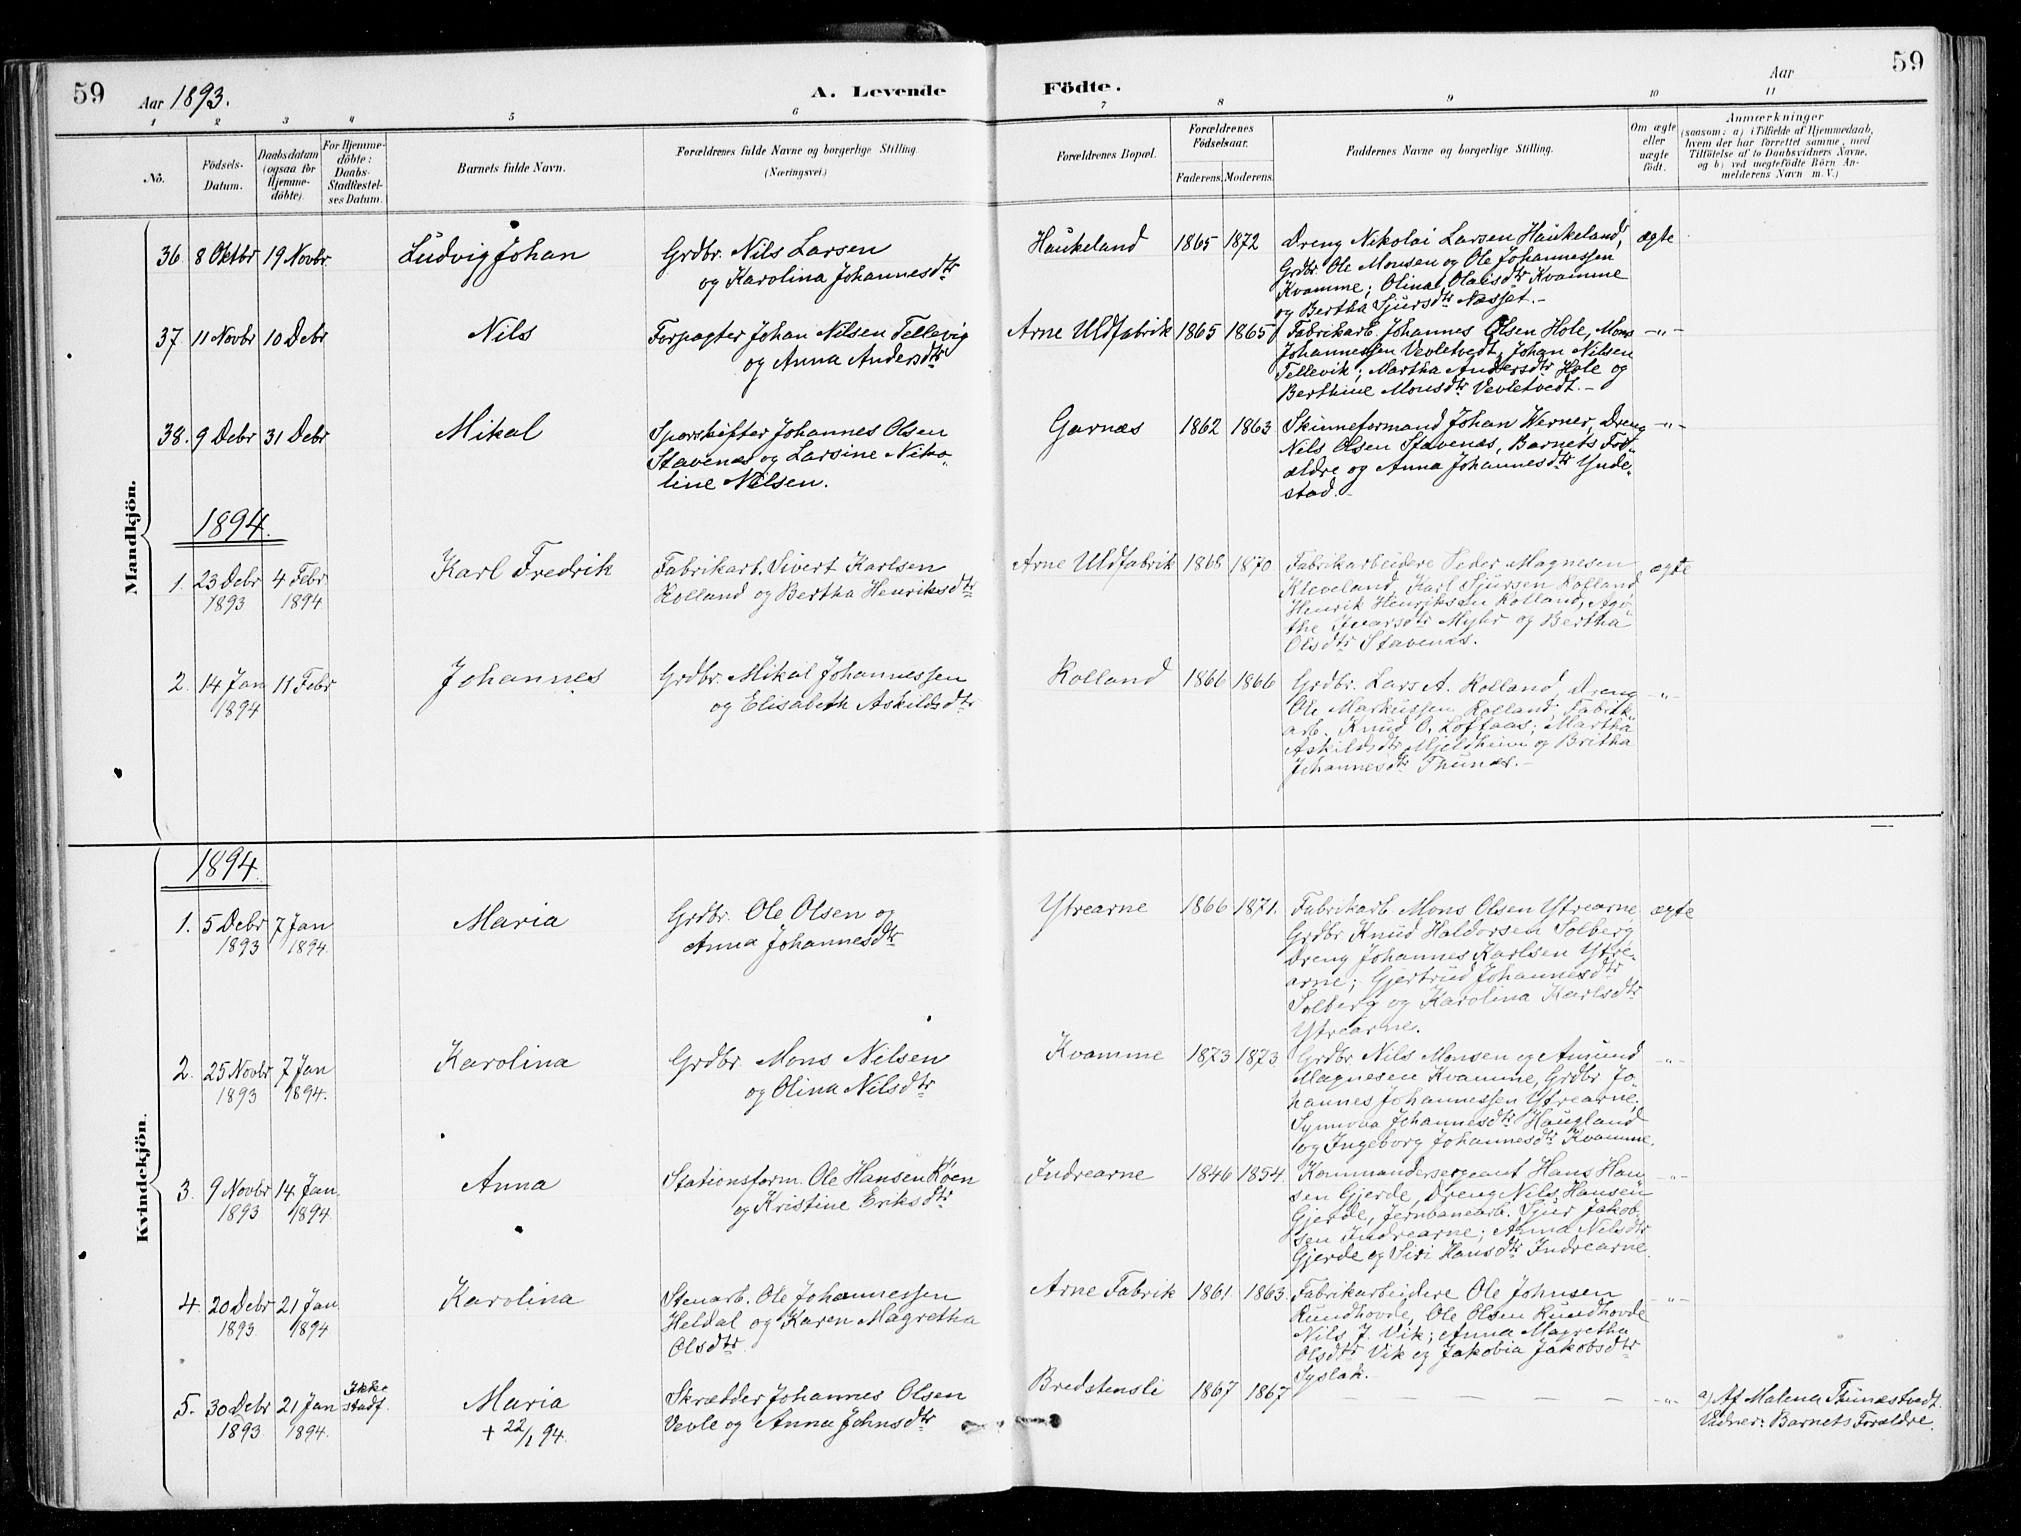 59
Aar 1893.
A. Levende
Födte.
Aar
59
1 2 3 4 5 6 7 8 9 10 11
No.
Födsels-Datum.
Daabsdatum (ogsaa for Hjemmedöbte).
For Hjemmedöbte: Daabs-Stadfæstelses Datum.
Barnets fulde Navn.
Forældrenes fulde Navne og borgerlige Stilling.
(Næringsvei.)
Forældrenes Bopæl.
Forældrenes Födselsaar.
Faderens. Moderens.
Faddernes Navne og borgerlige Stilling.
Om ægte eller uægte födt.
Anmærkninger
(saasom: a) i Tilfælde af Hjemmedaab,
hvem der har forrettet samme, med
Tilföielse af to Daabsvidners Navne,
og b) ved uægtefödte Börn Anmelderens Navn m. V.)
Mandkjön.
36. 8 Oktbr 19 Novbr Ludvig Johan Grdbr. Nils Larsen Haukeland 1865 1872 Dreng Nikolai Larsen Haukeland, ægte
og Karolina Johannesdtr Grdbr. Ole Monsen og Ole Johannessen
Kvamme; Olina Olaisdtr Kvamme
og Bertha Sjursdtr Næsset.-
37. 11 Novbr 10 Debr Nils Forpagter Johan Nilsen Tellevig Arne Uldfabrik 1865 1865 Fabrikarb. Johannes Olsen Hole, Mons -"-
og Anna Andersdtr Johannessen Vevletvedt, Johan Nilsen
Tellevik; Martha Andersdtr Hole og
Berthine Monsdtr Vevletvedt.-
38. 9 Debr 31 Debr Mikal Sporskifter Johannes Olsen Garnæs 1862 1863 Skinneformand Johan Werner, Dreng -"-
Stavenæs og Larsine Niko- Nils Olsen Stavenæs, Barnets For-
line Nilsen. ældre og Anna Johannesdtr Ynde-
stad.-
1894.
1. 23 Debr 4 Febr Karl Fredrik Fabrikarb. Sivert Karlsen Arne Uldfabrik 1868 1870 Fabrikarbeidere Peder Magnesen ægte
1893 1894 Rolland og Bertha Henriksdtr Kleveland, Karl Sjursen Rolland,
Henrik Henriksen Rolland, Aga-
the Ivarsdtr Myhr og Bertha
Olsdtr Stavenæs.
2. 14 Jan 11 Febr Johannes Grdbr. Mikal Johannessen Rolland 1866 1866 Grdbr. Lars A. Rolland, Dreng -"-
1894 og Elisabeth Askildsdtr Ole Markussen Rolland, Fabrik-
arb. Knud O. Loftaas; Martha
Askildsdtr Mjeldheim og Britha
Johannesdtr Thunæs.-
Kvindekjön.
1894.
1. 5 Debr 7 Jan Maria Grdbr. Ole Olsen og Ytrearne 1866 1871. Fabrikarb. Mons Olsen Ytrearne, ægte
1893 1894. Anna Johannesdtr Grdbr Knud Haldorsen Solberg,
Dreng Johannes Karlsen Ytre-
arne; Gjertrud Johannesdtr
Solberg og Karolina Karlsdtr
Ytrearne.
2. 25 Novbr 7 Jan Karolina Grdbr. Mons Nilsen Kvamme 1873 1873. Grdbr. Nils Monsen og Amund -"-
1893 1894. og Olina Nilsdtr Magnesen Kvamme, Grdbr Jo-
hannes Johannessen Ytrearne;
Synnova Johannesdtr Haugland
og Ingeborg Johannesdtr Kvamme.
3. 9 Novbr 14 Jan Anna Stationsform. Ole Hansen Köen Indrearne 1846 1854. Kommandersergeant Hans Han- -"-
1893 1894. og Kristine Eriksdtr sen Gjerde, Dreng Nils Hansen
Gjerde, Jernbanearb. Sjur Jakob-
sen Indrearne; Anna Nilsdtr
Gjerde og Siri Hansdtr Indrearne.
4. 20 Debr 21 Jan Karolina Stenarb. Ole Johannessen Arne Fabrik 1861 1863. Fabrikarbeidere Ole Johnsen -"-
1893 1894 Heldal og Karen Magretha Rundhovde, Ole Olsen Rundhovde
Olsdtr. Nils J. Vik; Anna Magretha
Olsdtr Vik og Jakobia Jakobsdtr
Syslak.
5. 30 Debr 21 Jan Ikke stadf. Maria Skrædder Johannes Olsen Bredstensli 1867 1867 - - - -"- a) Af Malena Thunæstvedt.
1893 1894. + 22/1 94. Vevle og Anna Johnsdtr Vidner: Barnets Forældre.